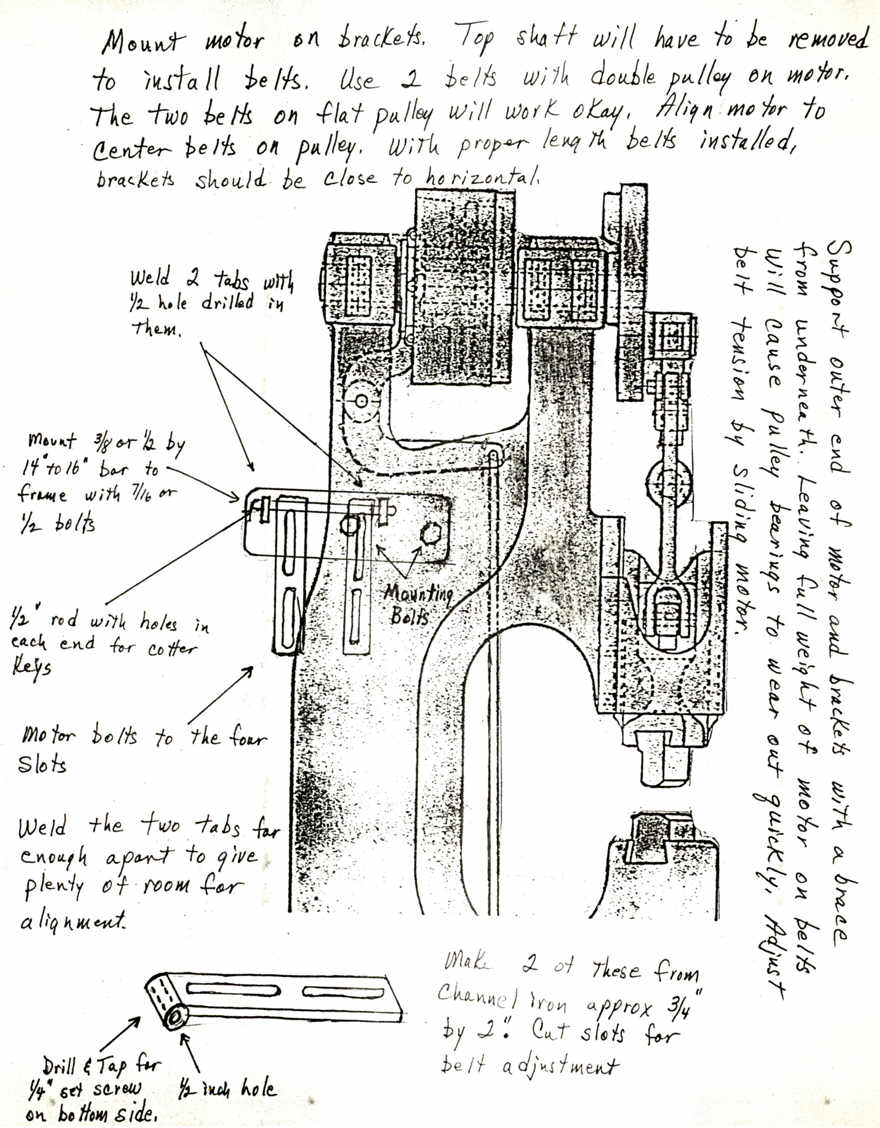 Mount motor on brackets. Top shaft will have to be removed
to install belts. Use 2 belts with double pulley on motor.
The two belts on flat pulley will work okay. Align motor to
center belts on pulley. With proper length belts installed,
brackets should be close to horizontal.
Support outer end of motor and brackets with a brace
from underneath. Leaving full weight of motor on belts
will cause pulley bearings to wear out quickly. Adjust
belt tension by sliding motor.
Weld 2 tabs with
1/2 hole drilled in
them.
Mount 3/8 or 1/2 by
14" to 16" bar to
frame with 7/16 or
1/2 bolts
Mounting
Bolts
1/2" rod with holes in
each end for cotter
Keys
Motor bolts to the four
Slots
Weld the two tabs far
enough apart to give
plenty of room for
alignment.
Make 2 of these from
Channel iron approx 3/4"
by 2". Cut slots for
belt adjustment
Drill & Tap for
1/4" set screw
on bottom side.
1/2 inch hole